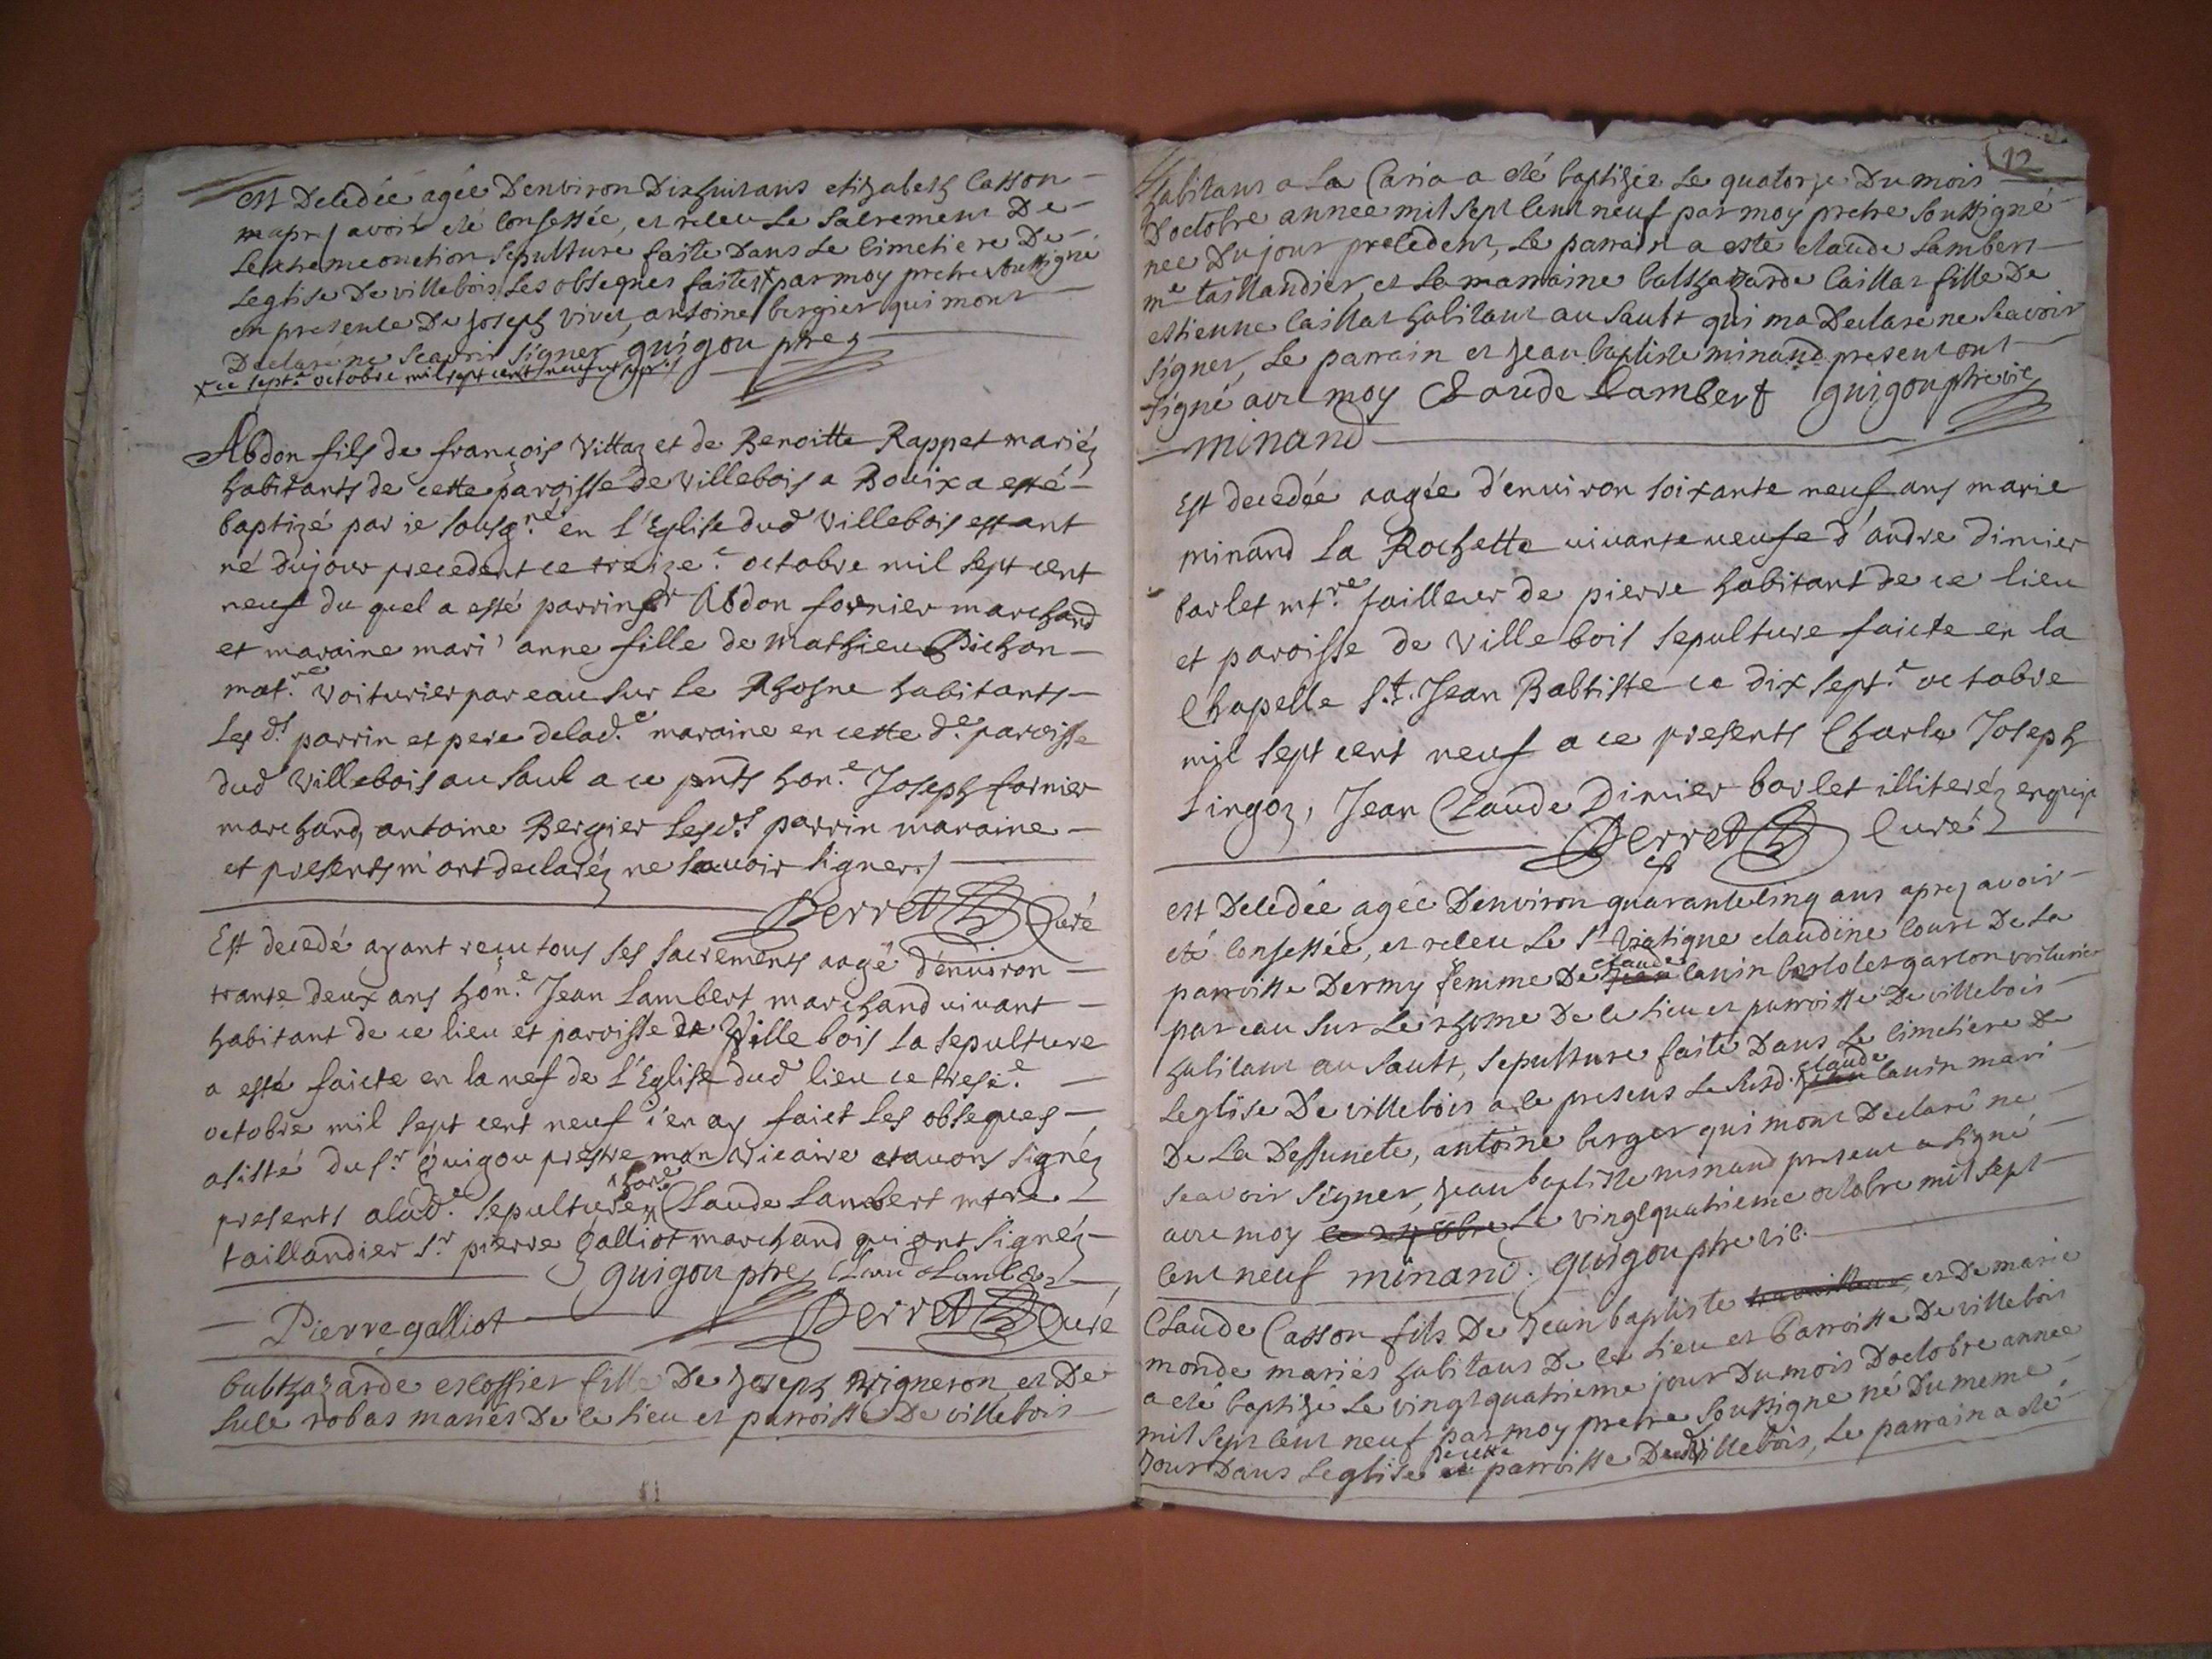 est Decedée agée Denviron Dixhuit ans elizabeth Casson
mapres avoir eté Confessée, et receu Le Sacrement De
Lextremeonction Sepulture faite Dans Le Cimetiere De
Leglise De villebois, Les obseques faites x par moy pretre soussigné
en presence De Joseph vivet, antoine bergier qui mont
Declaré ne Scavoir Signer guigou ptre
x ce sept.e octobre mil sept cent neuf
Abdon fils de françois Vittaz et de Benoitte Rappet mariéz
habitants de cette paroisse de villebois a Bouix a esté
baptizé par ie sousg.né en l'Eglise dud villebois estant
né du jour precedent ce treize.e octobre mil sept cent
neuf du quel a esté parrin Sr Abdon fornier marchand
et maraine mari' anne fille de Mathieu Bichon
mat.re voiturier par eau sur le Rhosne habitants
Les d.t parrin et pere delad.e maraine en cette d.e paroisse
dud villebois au Saul a ce pnts hon.e Joseph fornier
marchand, antoine Bergier lesd.t parrin maraine
et presents m'ont declaréz ne scauoir signer
Perret Curé
Est decedé ayant receu tous ses sacrements aagé d'enuiron
trante deux ans hon.e Jean Lambert marchand uiuant
habitant de ce lieu et paroisse de Ville bois la sepulture
a esté faicte en la nef de l'Eglise dud lieu ce tresi.e
octobre mil sept cent neuf i'en ay faict les obseques
asisté du s.r Guigou prestre mon vicaire et auons signéz
presents alad.e sepulture Claude Lambert mtre
taillandier s.r pierre galliot marchand qui ont signéz
guigou ptre Claude Lambert
Pierre galliot Perret Curé
balthazarde escoffier fille De Joseph vigneron et De
Lucé robas mariés De ce Lieu et parroisse De villebois
12
habitans a La Caria a eté baptizée Le quatorze Du mois
Doctobre année mil Sept Cent neuf par moy pretre Soussigné
née Du jour precedent, Le parrain a este claude Lambert
me taillandier, et La marraine balthazarde Caillat fille De
estienne Caillat habitant au Sault qui ma Declaré ne Scavoir
signer, Le parrain et Jean baptiste minand present ont
signé avec moy Claude Lambert guigou ptre vic
minand
Est decedée aagée d'enuiron soixante neuf ans marie
minand La Rochette uiuante ueufe d'andre dimier
barlet mt.re tailleur de pierre habitant de ce lieu
et paroisse de Ville bois sepulture faicte en la
Chapelle S.t Jean Babtiste ce dix sept.e octobre
mil sept cent neuf a ce presents Charle Joseph
Lingoz, Jean Claude Dimier barlet illiteréz enquis
Perret Curé
est Decedée agée Denviron quarantecinq ans aprez avoir
eté Confessée, et receu Le St Viatique claudine Court De La
parroisse Dermy femme De claude Cauin barlolet garcon voiturier
par eau Sur Le rhosne De ce Lieu et parroisse De villebois
habitant au Sault, Sepulture faite Dans Le Cimetiere De
Leglise De villebois a ce presens Le Susd. claude Cauin mari
De La Deffuncte, antoine berger qui mont Declaré ne
Scavoir Signer, Jean baptiste minand present a signé
avec moy Le vingtquatrieme octobre mil Sept
Cent neuf minand. guigou ptre vic.
Claude Casson fils De Jean baptiste et De marie
monde mariés habitans De ce Lieu et Parroisse De villebois
a eté baptizé Le vingtquatrieme jour Du mois Doctobre annee
mil Sept Cent neuf par moy pretre Soussigne né Du meme
Jour Dans Leglise De cette parroisse De villebois, Le parrain a eté